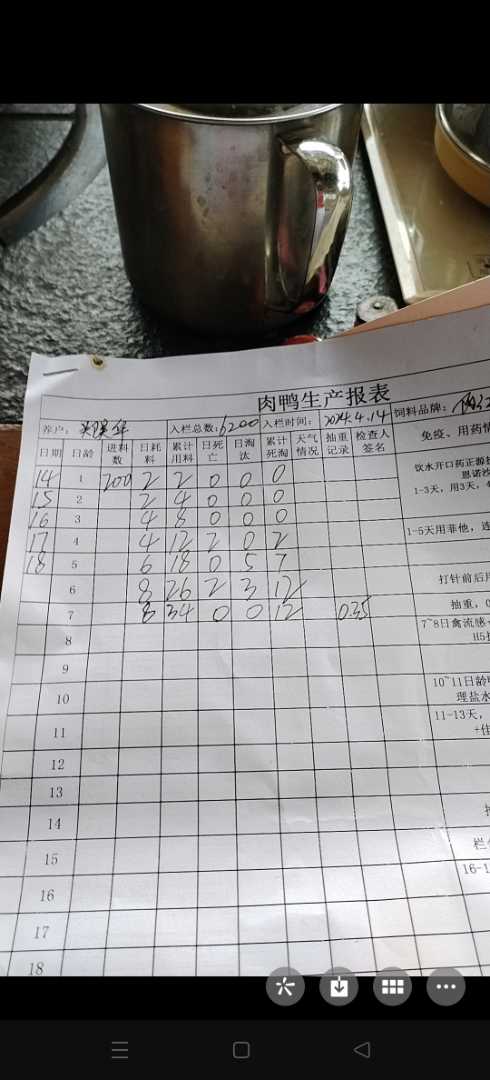 肉鸭生产报表
养户: 入栏总数:6200 入栏时间: 2024.4.14 饲料品牌:
日期 日龄 进料数 日耗料 累计用料 日死亡 日淘汰 累计死淘 天气情况 抽重记录 检查人签名 免疫、用药情
14 1 200 2 2 0 0 0 饮水开口药正源
1-3天，用3天，
15 2 2 4 0 0 0
16 3 4 8 0 0 0
17 4 4 12 2 0 2 1-5天用菲他，连
18 5 6 18 0 5 7
6 8 26 2 3 12 打针前后
7 8 34 0 0 12 0.35 抽重，
8 7~8日禽流感
H5
9
10 10~11日龄
理盐水
11 11-13天，
12
13
14
15 栏
16 16-1
17
18